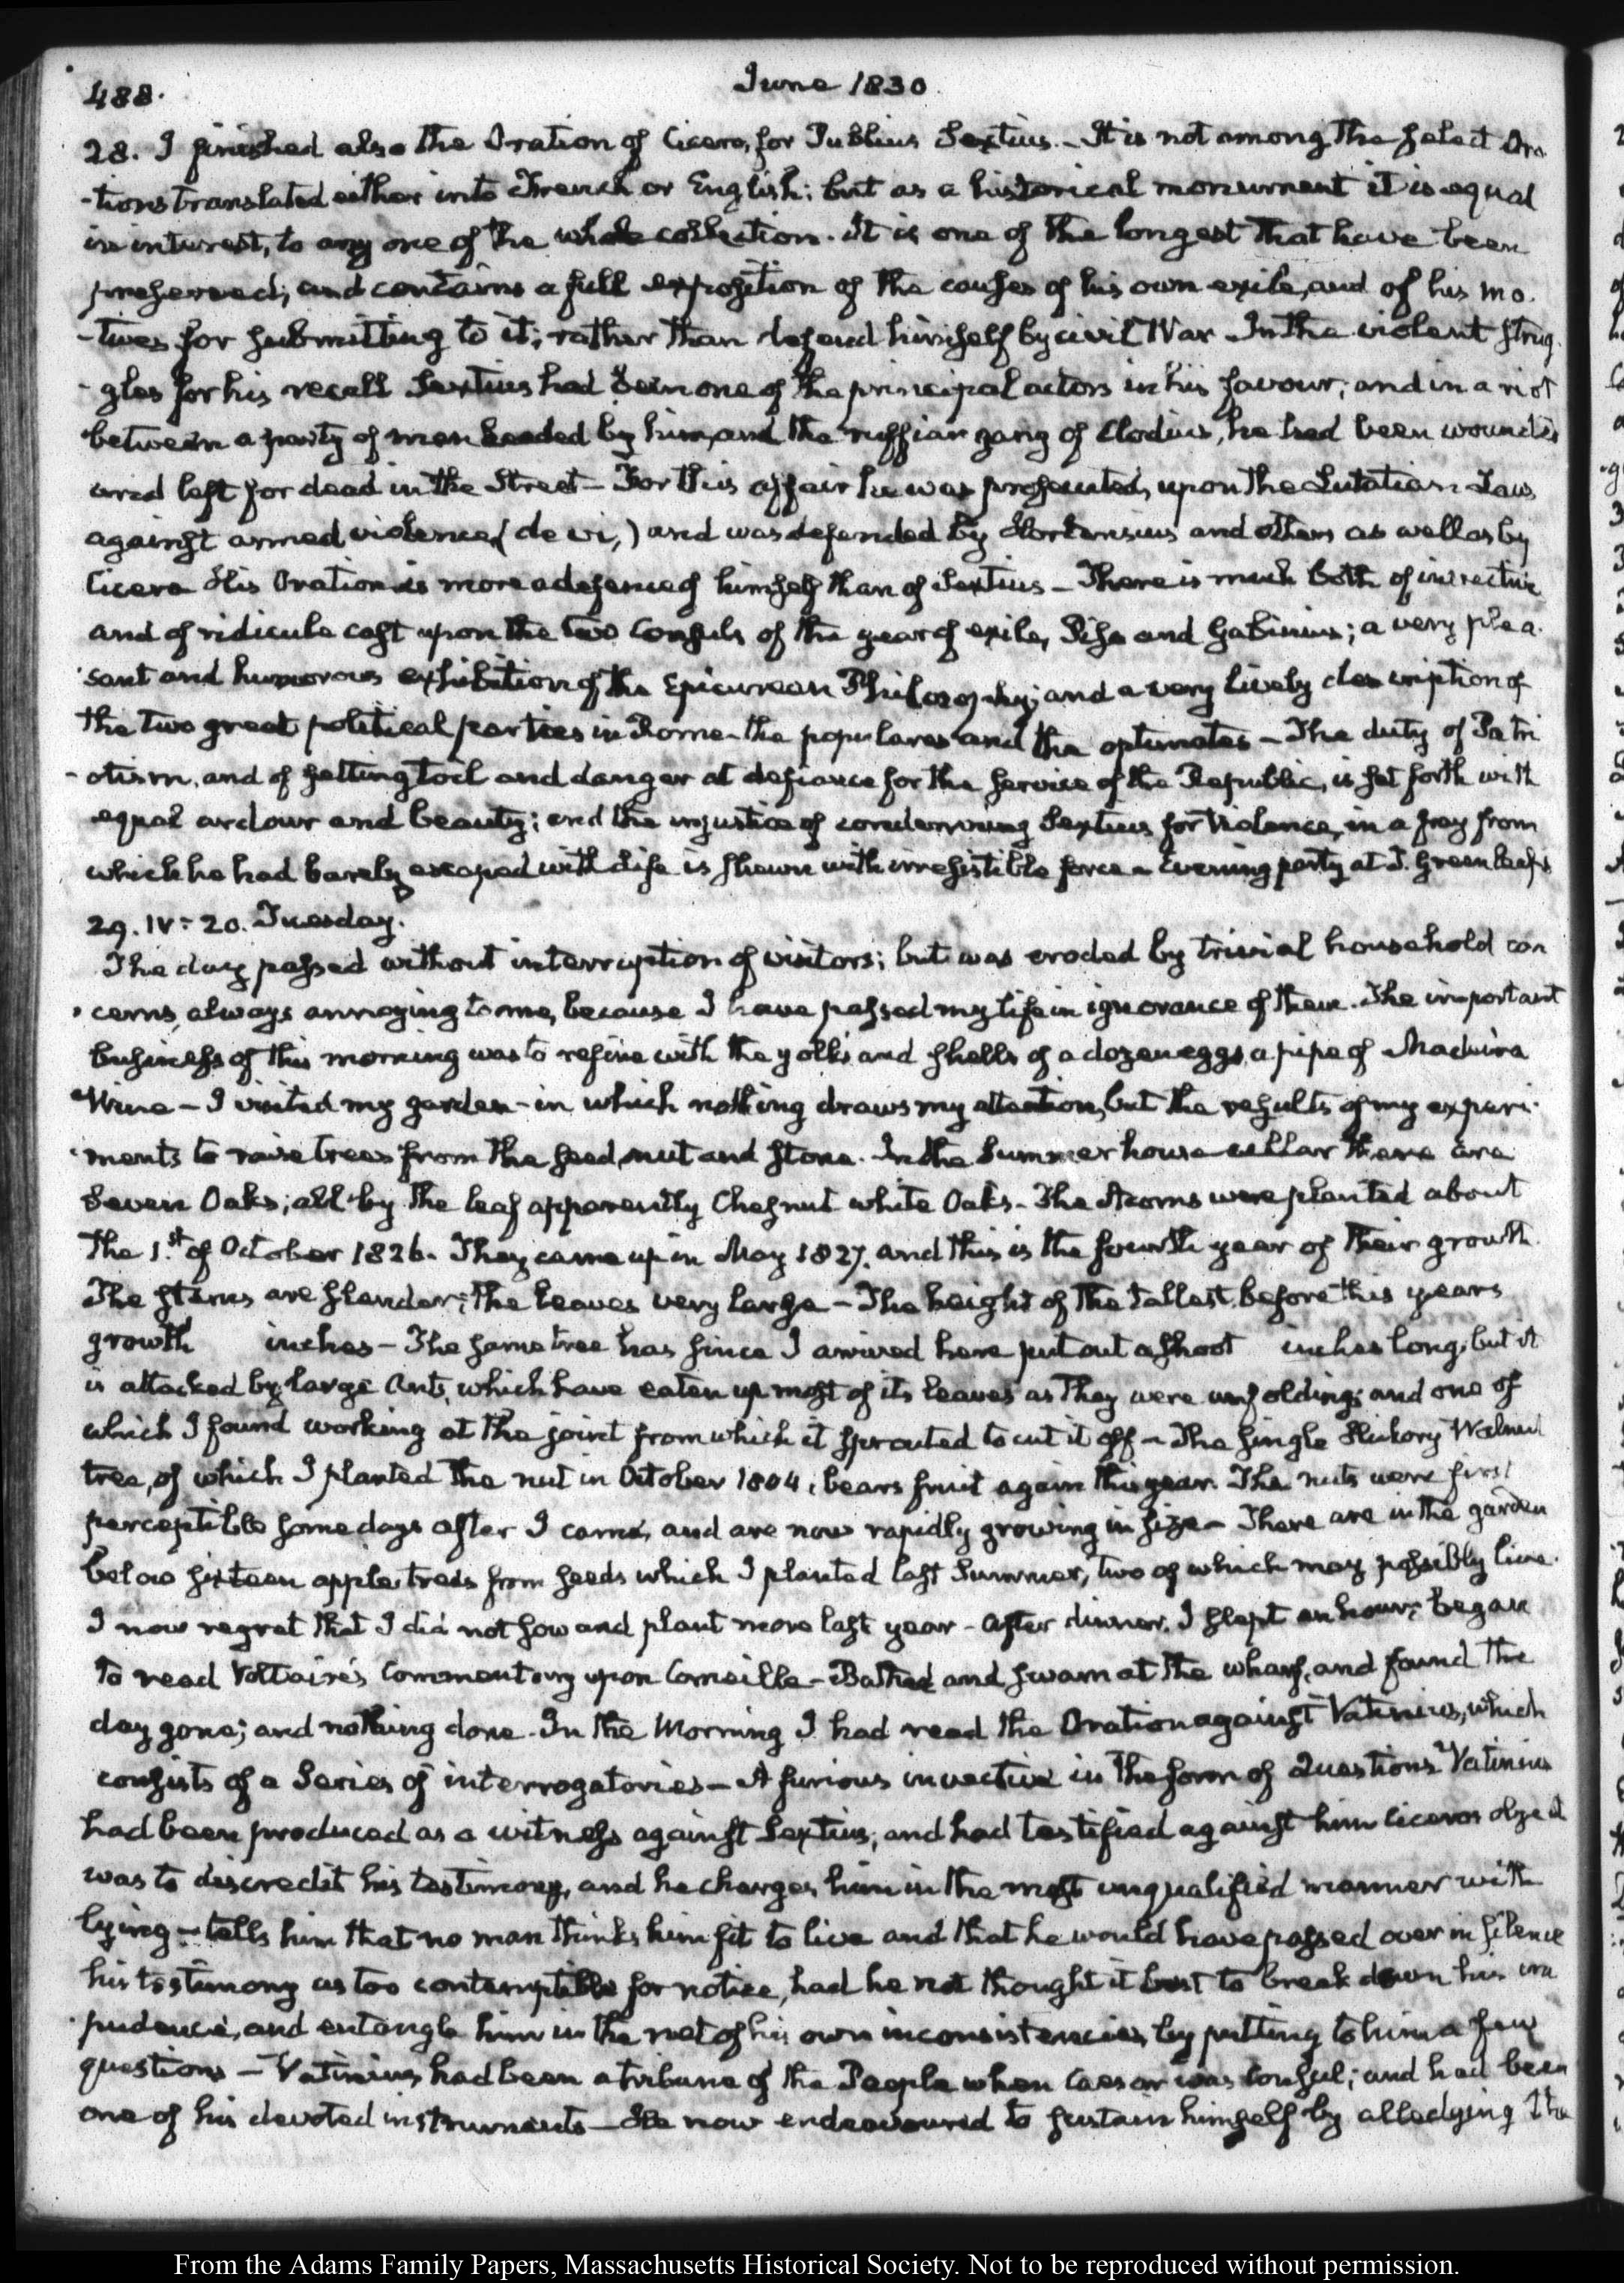 488.
June 1830.
28. I finished also the Oration of Cicero, for Publius Sextius. - It is not among the select Ora
-tions translated either into French or English: but as a historical monument it is equal
in interest, to any one of the whole collection. It is one of the longest that have been
preserved; and contains a full exposition of the causes of his own exile, and of his mo.
-tives for submitting to it; rather than defend himself by civil War - In the violent strug.
-gles for his recall Sextius had been one of the principal actors in his favour; and in a riot
between a party of men headed by him, and the ruffian gang of Clodius, he had been wounded
and left for dead in the Street - For this affair he was prosecuted, upon the Lutatian Law
against armed violence, (de vi,) and was defended by Hortensius and others as well as by
Cicero His Oration is more a defence of himself than of Sextius - There is much both of invective
and of ridicule cast upon the two Consuls of the year of exile, Piso and Gabinius; a very plea.
sant and humorous exhibition of the Epicurean Philosophy; and a very lively description of
the two great political parties in Rome - the populares and the optimates - The duty of Patri
-otism, and of setting toil and danger at defiance for the service of the Republic, is set forth with
equal ardour and beauty; and the injustice of condemning Sextius for violence, in a fray from
which he had barely escaped with life is shewn with irresistible force - Evening party at D. Greenleaf's
29. IV: 20. Tuesday.
The day passed without interruption of visitors; but was eroded by trivial household con
cerns, always annoying to me, because I have passed my life in ignorance of them. The important
business of this morning was to refine with the yolks and shells of a dozen eggs, a pipe of Madeira
Wine - I visited my garden - in which nothing draws my attention, but the results of my experi.
ments to raise trees from the seed, nut and stone. In the Summer house cellar there are
Seven Oaks; all by the leaf apparently Chesnut white Oaks - The Acorns were planted about
the 1st of October 1826. They came up in May 1827. and this is the fourth year of their growth.
The stems are slender; the leaves very large - The height of the tallest before this years
growth inches - The same tree has since I arrived here put out a shoot inches long, but it
is attacked by large Ants, which have eaten up most of its leaves as they were unfolding; and one of
which I found working at the joint from which it sprouted to cut it off - The single Hickory Walnut
tree, of which I planted the nut in October 1804, bears fruit again this year. The nuts were first
perceptible some days after I came, and are now rapidly growing in size - There are in the garden
below sixteen apple trees from seeds which I planted last Summer, two of which may possibly live.
I now regret that I did not sow and plant more last year - After dinner, I slept an hour; began
to read Voltaire's Commentary upon Corneille - Bathed and swam at the wharf, and found the
day gone; and nothing done - In the Morning I had read the Oration against Vatinius, which
consists of a Series of interrogatories - A furious invective in the form of Questions Vatinius
had been produced as a witness against Sextius; and had testified against him Ciceros object
was to discredit his testimony, and he charges him in the most unqualified manner with
lying - tells him that no man thinks him fit to live and that he would have passed over in silence
his testimony as too contemptible for notice, had he not thought it best to break down his im
pudence, and entangle him in the net of his own inconsistencies, by putting to him a few
questions - Vatinius had been a tribune of the People when Caesar was Consul; and had been
one of his devoted instruments - He now endeavoured to sustain himself by alledging the
From the Adams Family Papers, Massachusetts Historical Society. Not to be reproduced without permission.